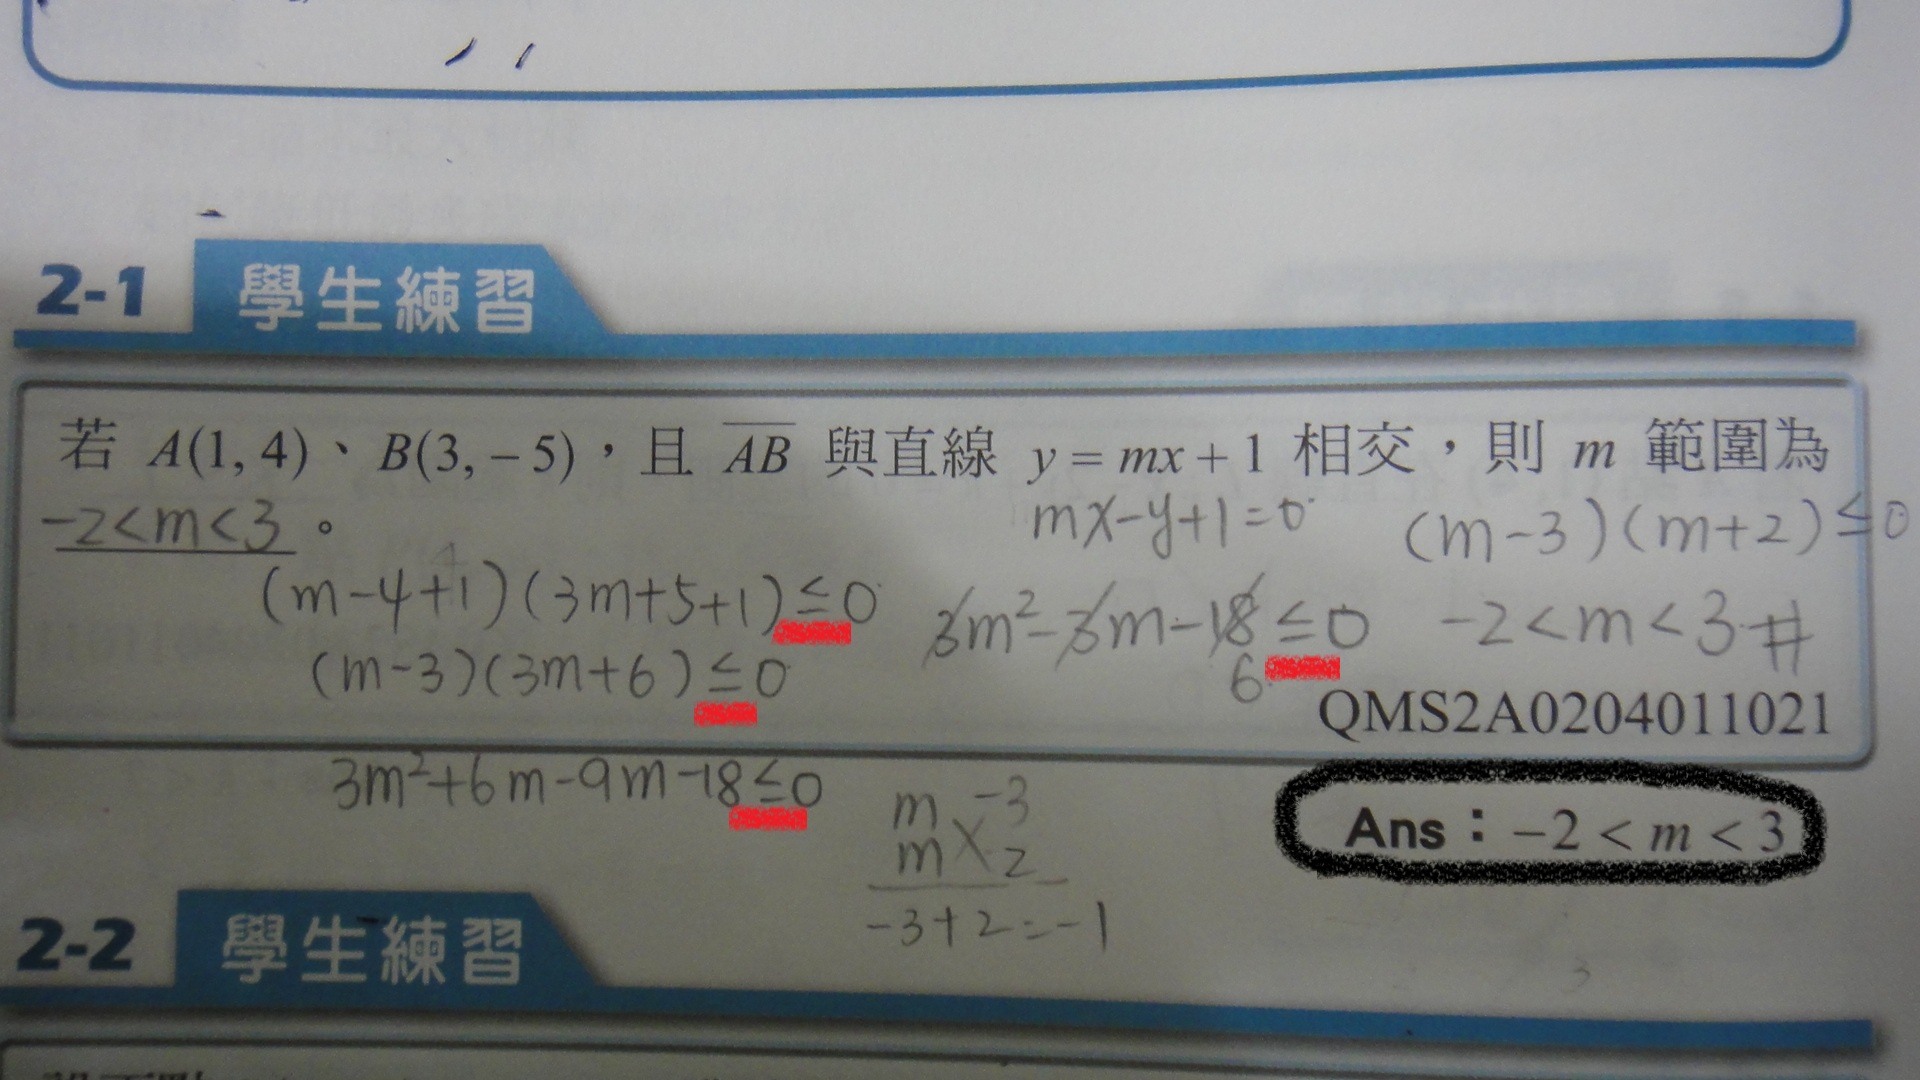 2-1 學生練習
若 A(1, 4)、B(3, – 5)，且 AB 與直線 y = mx + 1 相交，則 m 範圍為
-2<m<3。
mx-y+1=0
(m-3)(m+2)≤0
(m-4+1)(3m+5+1)≤0
3m²-3m-18≤0
6
-2<m<3 #
(m-3)(3m+6)≤0
QMS2A0204011021
3m²+6m-9m-18≤0
m -3
m 2
-3+2=-1
Ans：–2 < m < 3
2-2 學生練習